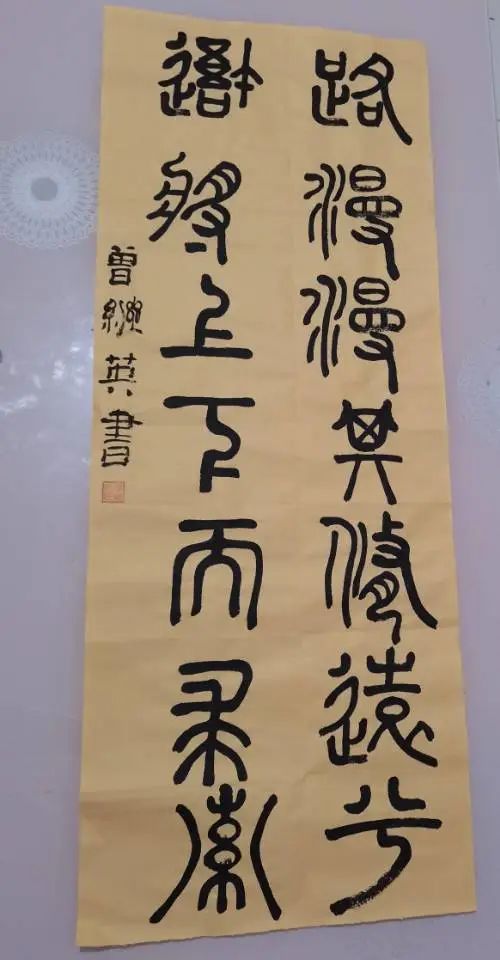 路漫漫其修遠兮
吾將上下而求索
曾英書